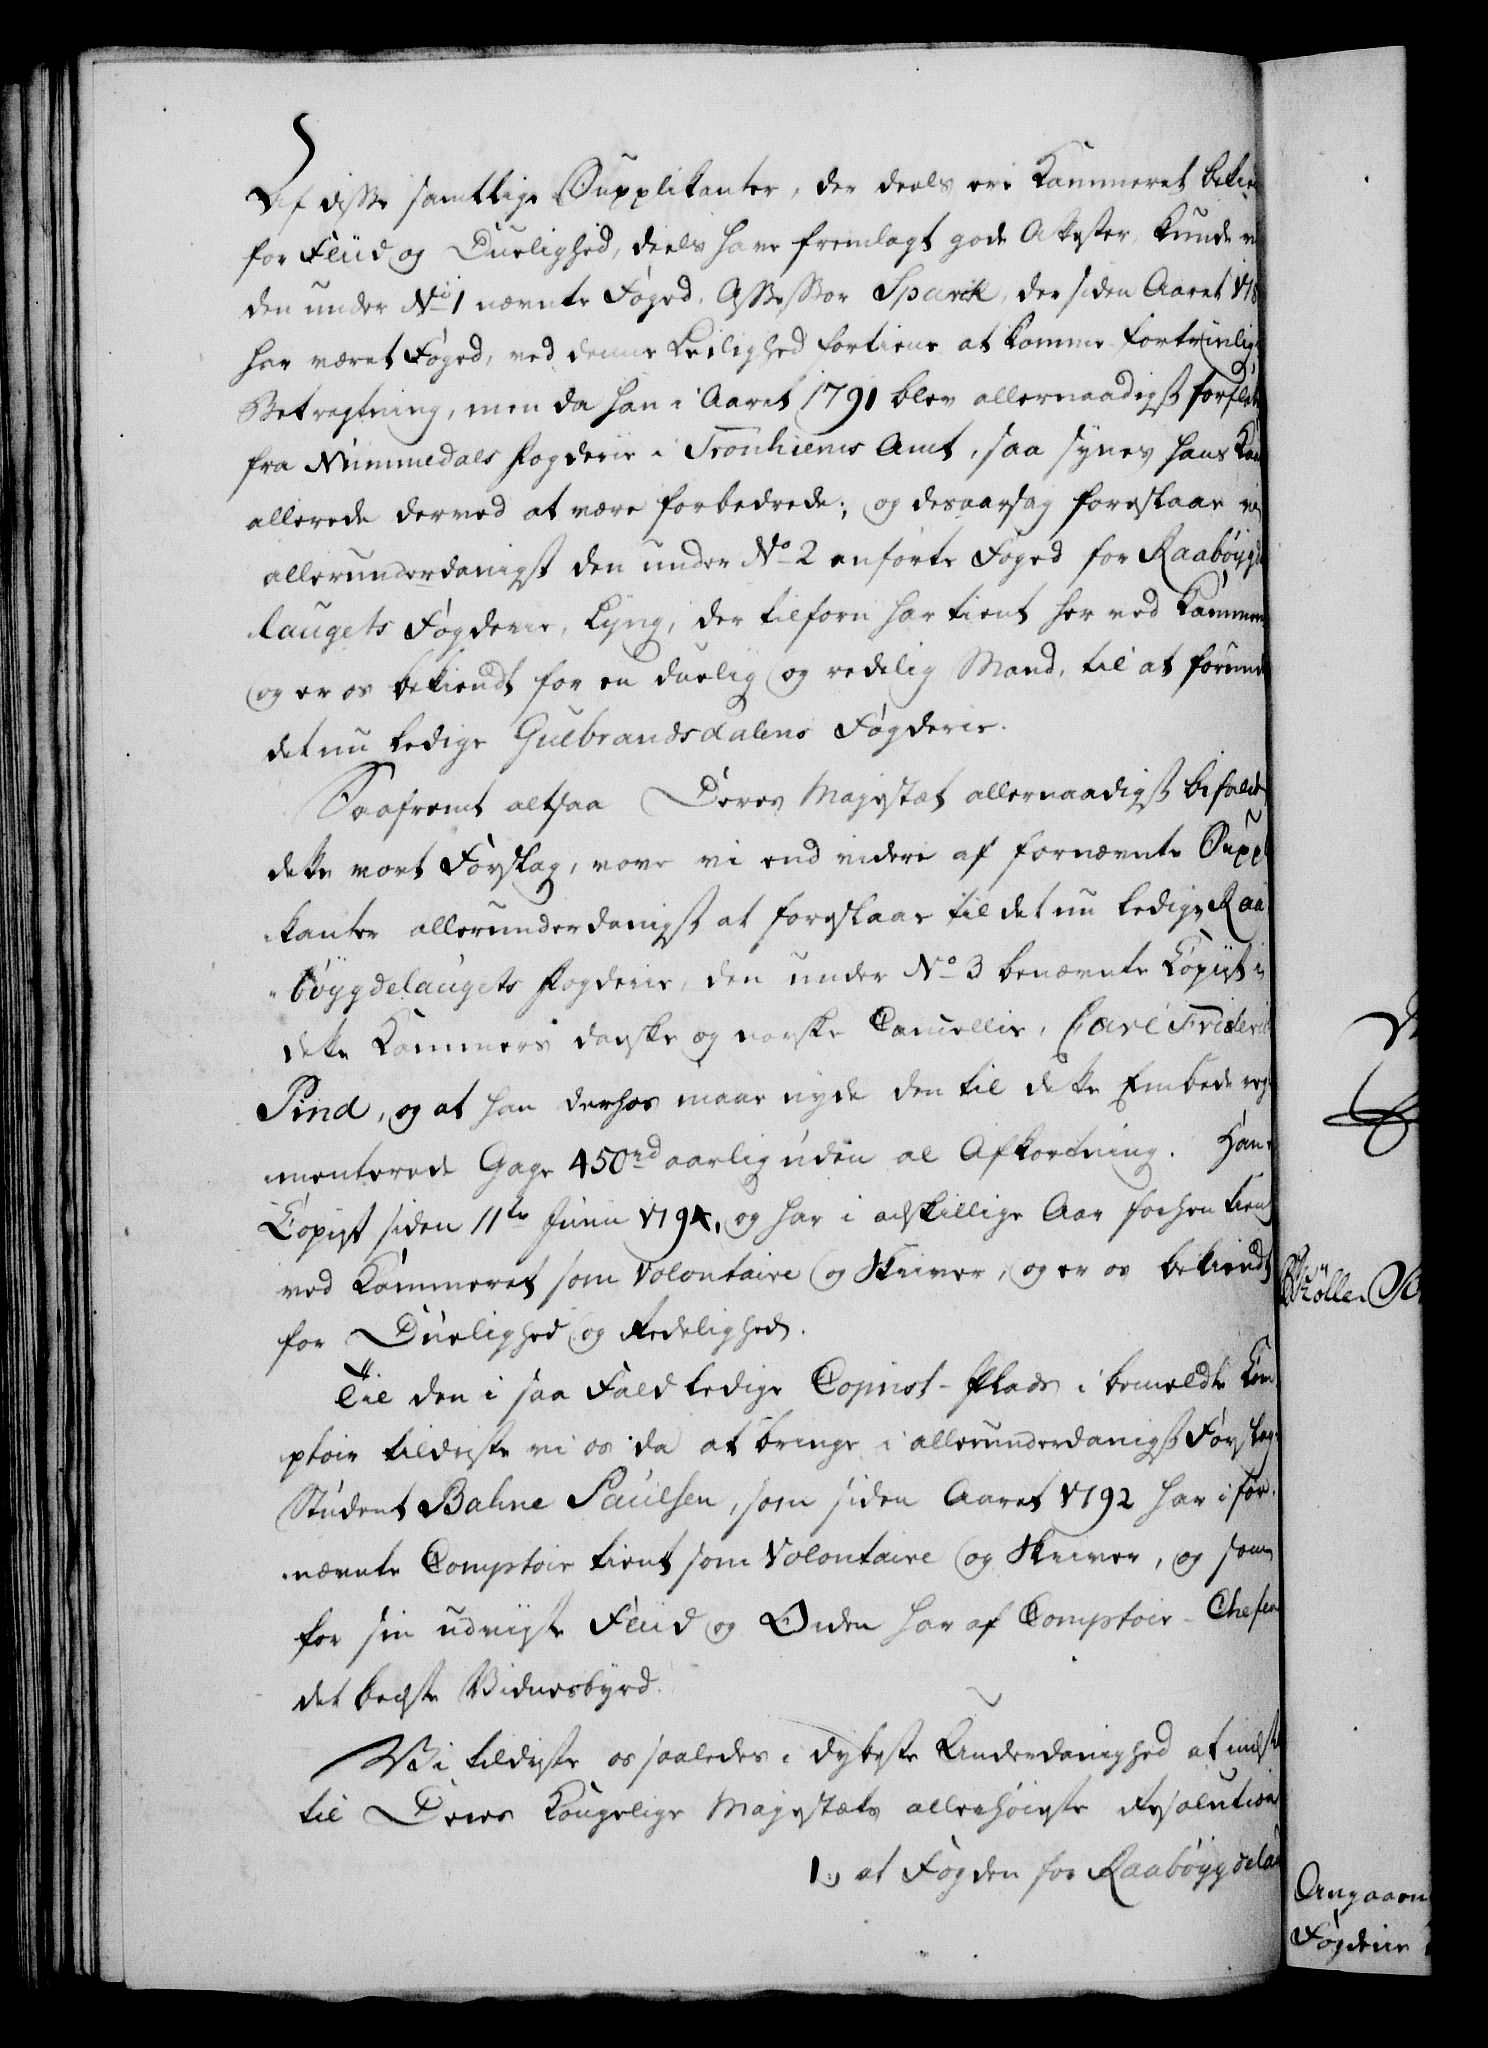 Af disse samtlige Supplikanter, der deels ere Kammeret bekien
for Fliid og Duelighed, deels have fremlagt gode Attester, kunde vi
den under No 1 nævnte Foged, Assessor Sparck, der siden Aaret 178
har været Foged, ved denne Leilighed fortiene at komme fortrinlig i
Betragtning, men da han i Aaret 1791 blev allernaadigst forflyt
fra Nummedals Fogderie i Tronhiems Amt, saa synes hans Kaar
allerede derved at være forbedrede; og desaarsag foreslaae vi
allerunderdanigst den under No 2 anførte Foged for Raabøygde
laugets Fogderie, Lyng, der tilforn har tient her ved Kammere
og er os bekiendt for en duelig og redelig Mand, til at forund
det nu ledige Gulbrandsdalens Fogderie.
Saafremt altsaa Deres Majestæt allernaadigst befalde
dette vort Forslag, vove vi end videre af fornævnte Suppl
kanter allerunderdanigst at foreslaae til det nu ledige Raa
bøygdelaugets Fogderie, den under No 3 benævnte Copiist i
dette Kammers danske og norske Cancellie, Carl Friderich
Pind, og at han derhos maae nyde den til dette Embede regl
menterede Gage 450 rd aarlig uden al Afkortning. Han er
Copist siden 11te Junii 1794, og har i adskillige Aar forhen tient
ved Kammeret som Volontaire og Skriver, og er os bekiendt
for Duelighed og Redelighed.
Til den i saa Fald ledige Copiist-Plads i bemeldte Com
ptoir tildriste vi os da at bringe i allerunderdanigst Forslag
Student Bahne Paulsen, som siden Aaret 1792 har i for
nævnte Comptoir tient som Volontaire og Skriver, og som
for sin udviste Fliid og Orden har af Comptoir-Chefen
det bedste Vidnesbyrd.
Vi tildriste os saaledes i dybeste Underdanighed at indst
til Deres Kongelige Majestæts allerhøieste Resolution
1.) at Fogden for Raabøygdelau
Møller
Angaaen
Fogderie